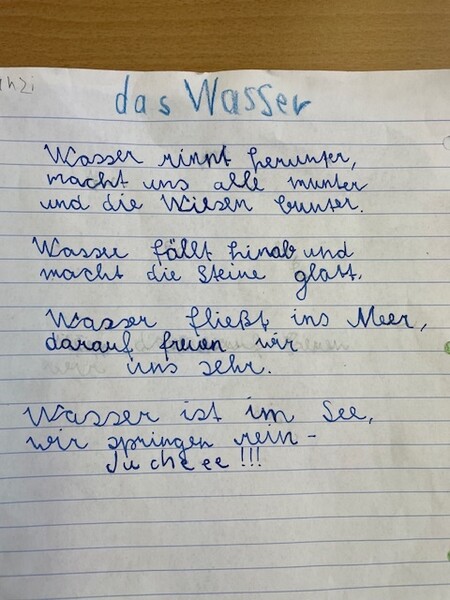 das Wasser
Wasser rinnt herunter,
macht uns alle munter
und die Wiesen bunter.
Wasser fällt hinab und
macht die Steine glatt.
Wasser fließt ins Meer,
darauf freuen wir
uns sehr.
Wasser ist im See,
wir springen rein -
Jucheee!!!